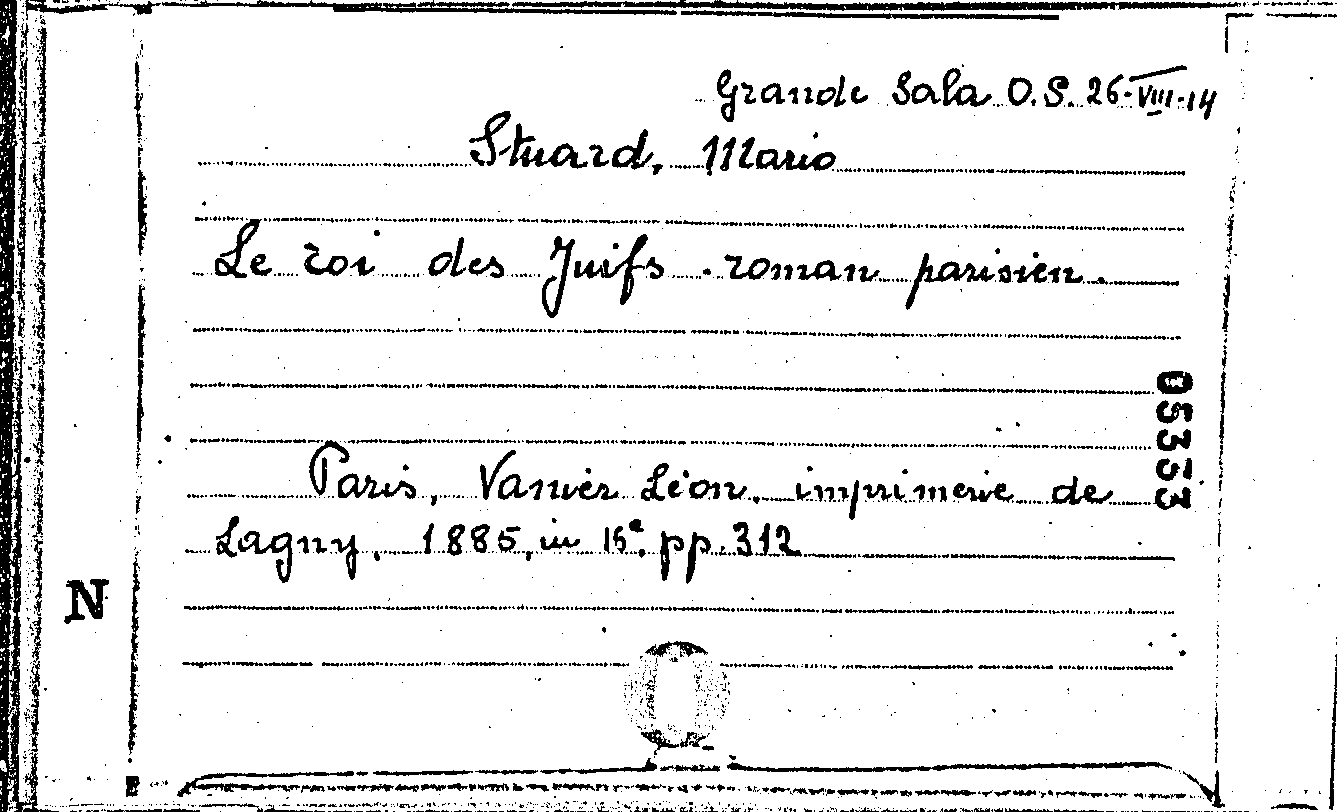 Grande Sala O.S. 26-VIII-14
Stuard, Mario
Le roi des Juifs . roman parisien.
Paris, Vanier Léon, imprimerie de
Lagny, 1885, in 16°, pp. 312
05353
N